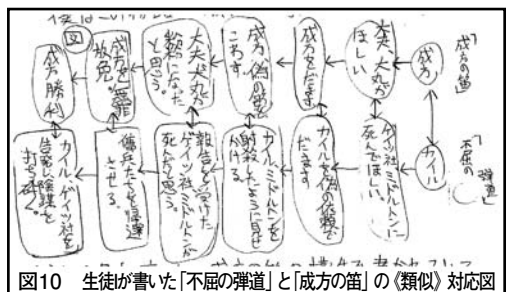 「成方の笛」
成方
大夫、大丸が
ほしい
成方をだます
成方、偽の笛を
こわす
大夫、大丸が
粉々になった
と思う。
成方を無罪
放免
成方勝利
図
「不屈の
弾道」
カイル
ゲイツ社、ミドルトンに
死んでほしい。
カイルを偽の依頼で
だます
カイル、ミドルトンを
射殺したように見せ
かける。
報告を受けた
ゲイツ社、ミドルトンが
死んだと思う。
傭兵たちを帰還
させる。
カイル、ゲイツ社を
告発し、陰謀を
打ち砕く。
図10 生徒Iが書いた「不屈の弾道」と「成方の笛」の《類似》対応図